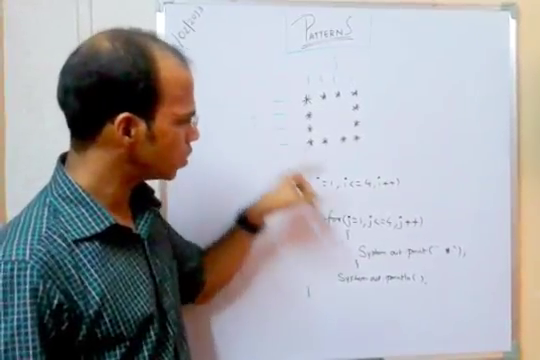 /02/2013
PATTERNS
* * * *
* *
* *
* * * *
i=1, i<=4, i++)
for(j=1, j<=4, j++)
{
System.out.print(" * "),
}
System.out.println( ),
}